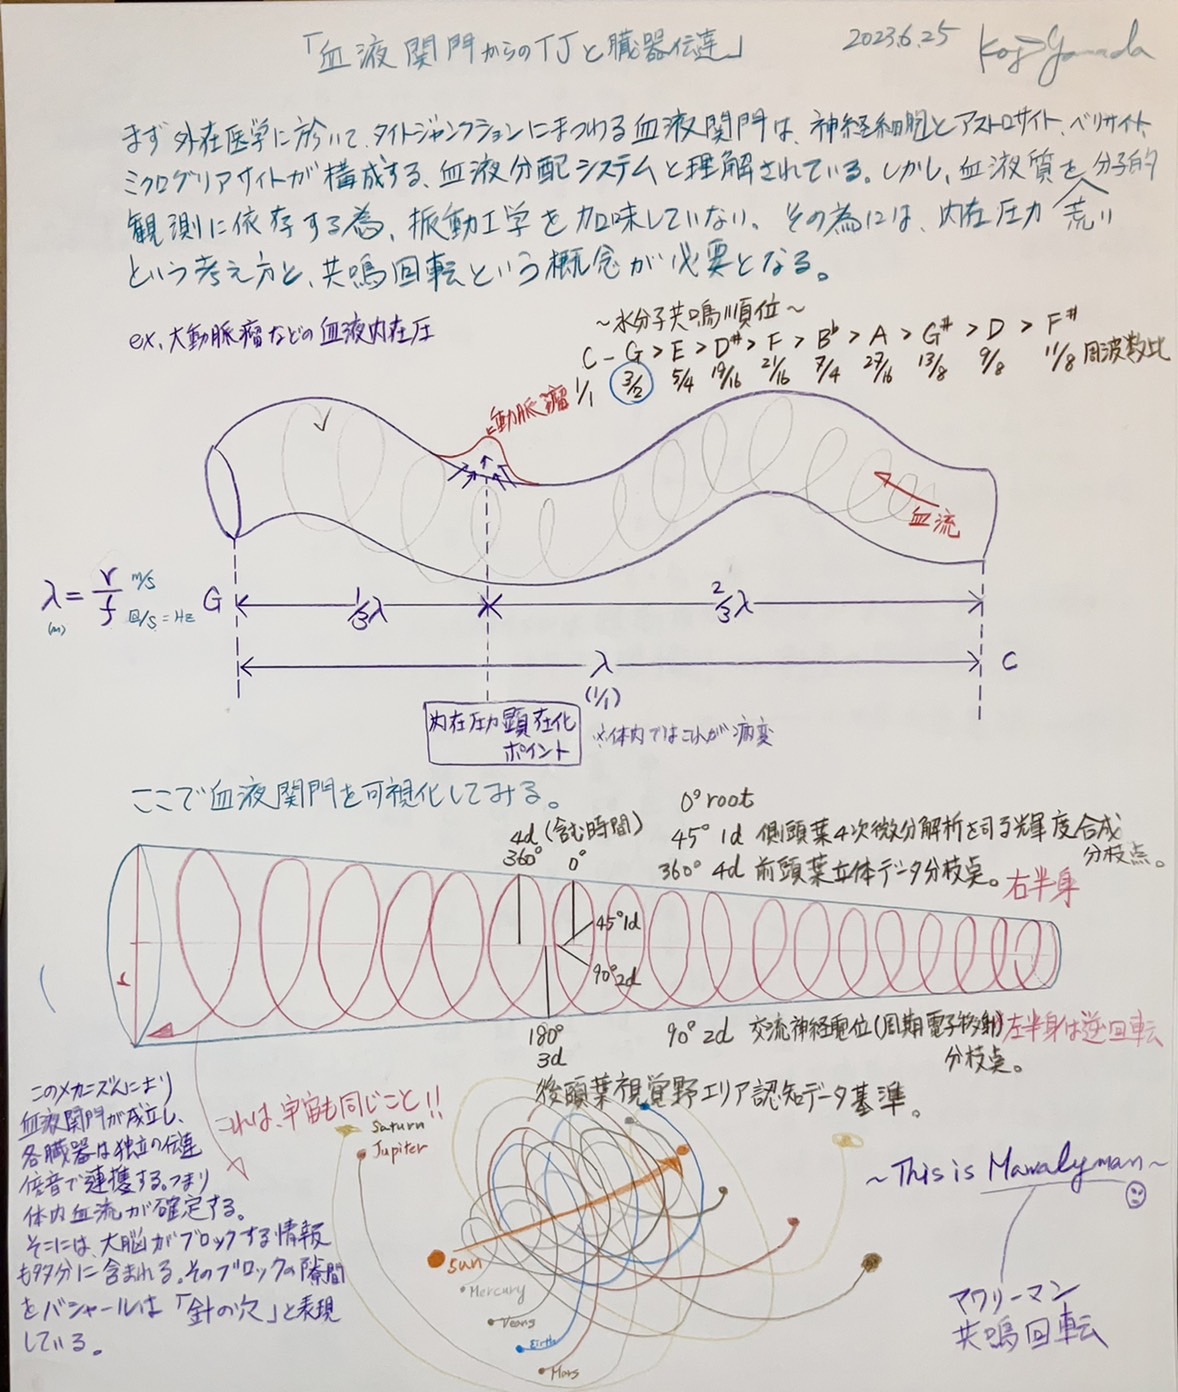 「血液関門からのTJと臓器伝達」 2023.6.25 Koji Yamada
まず外在医学に於いて、タイトジャンクションにまつわる血液関門は、神経細胞とアストロサイト、ペリサイト、
ミクログリアサイトが構成する、血液分配システムと理解されている。しかし、血液質を分子的
観測に依存する為、振動工学を加味していない。その為には、内在圧力荒い
という考え方と、共鳴回転という概念が必要となる。
ex、大動脈瘤などの血液内在圧
〜水分子共鳴順位〜
C - G > E > D# > F > B♭ > A > G# > D > F#
1/1 3/2 5/4 19/16 21/16 7/4 27/16 13/8 9/8 11/8 周波数比
動脈瘤
血流
λ = v/f m/s
(m) 回/s = Hz
G 1/3λ 2/3λ
λ C
(1/1)
内在圧力顕在化
ポイント
※体内ではこれが病変
ここで血液関門を可視化してみる。
0° root
4d (含む時間)
360° 0°
45° 1d 側頭葉4次微分解析を司る輝度合成
分枝点。
360° 4d 前頭葉立体データ分枝点。
右半身
45° 1d
90° 2d
r
180°
3d
90° 2d 交流神経電位(周期電子移射)
分枝点。
左半身は逆回転
後頭葉視覚野エリア認知データ基準。
このメカニズムにより
血液関門が成立し、
各臓器は独立の伝達
倍音で連携する。つまり
体内血流が確定する。
そこには、大脳がブロックする情報
も多分に含まれる。そのブロックの隙間
をバシャールは「針の穴」と表現
している。
これは、宇宙も同じこと!!
Saturn
Jupiter
Sun
Mercury
Mars
〜This is Mawalyman〜
マワリーマン
共鳴回転